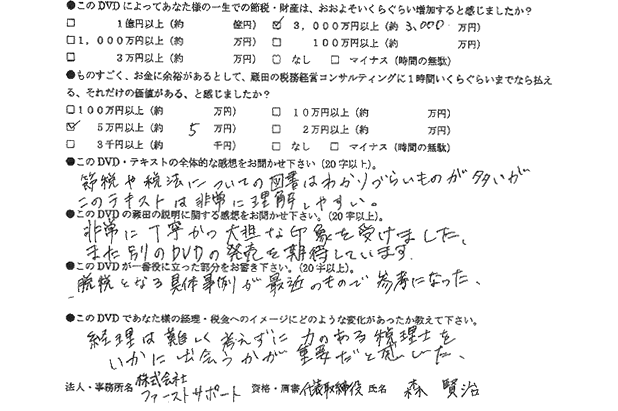 ●このDVDによってあなた様の一生での節税・財産は、おおよそいくらぐらい増加すると感じましたか?
□ 1億円以上(約 億円) ☑ 3,000万円以上(約 3,000 万円)
□1,000万円以上(約 万円) □ 100万円以上(約 万円)
□ 3万円以上(約 万円) □ なし □ マイナス(時間の無駄)
●ものすごく、お金に余裕があるとして、蔵田の税務経営コンサルティングに1時間いくらぐらいまでなら払え
る、それだけの価値がある、と感じましたか?
□100万円以上(約 万円) □ 10万円以上(約 万円)
☑ 5万円以上(約 5 万円) □ 2万円以上(約 万円)
□ 3千円以上(約 千円) □ なし □ マイナス(時間の無駄)
●このDVD・テキストの全体的な感想をお聞かせ下さい(20字以上)。
節税や税法についての図書はわかりづらいものが多いが
このテキストは非常に理解しやすい。
●このDVDの蔵田の説明に関する感想をお聞かせ下さい。(20字以上)。
非常に丁寧かつ大担な印象を受けました、
また別のDVDの発売を期待しています
●このDVDが一番役に立った部分をお書き下さい。(20字以上)。
脱税となる具体事例が最近のもので参考になった、
●このDVDであなた様の経理・税金へのイメージにどのような変化があったか教えて下さい。
経理は難しく考えずに力のある税理士を
いかに出会うかが重要だと感じた、
法人・事務所名 株式会社ファーストサポート 資格・肩書 代表取締役 氏名 森 賢治